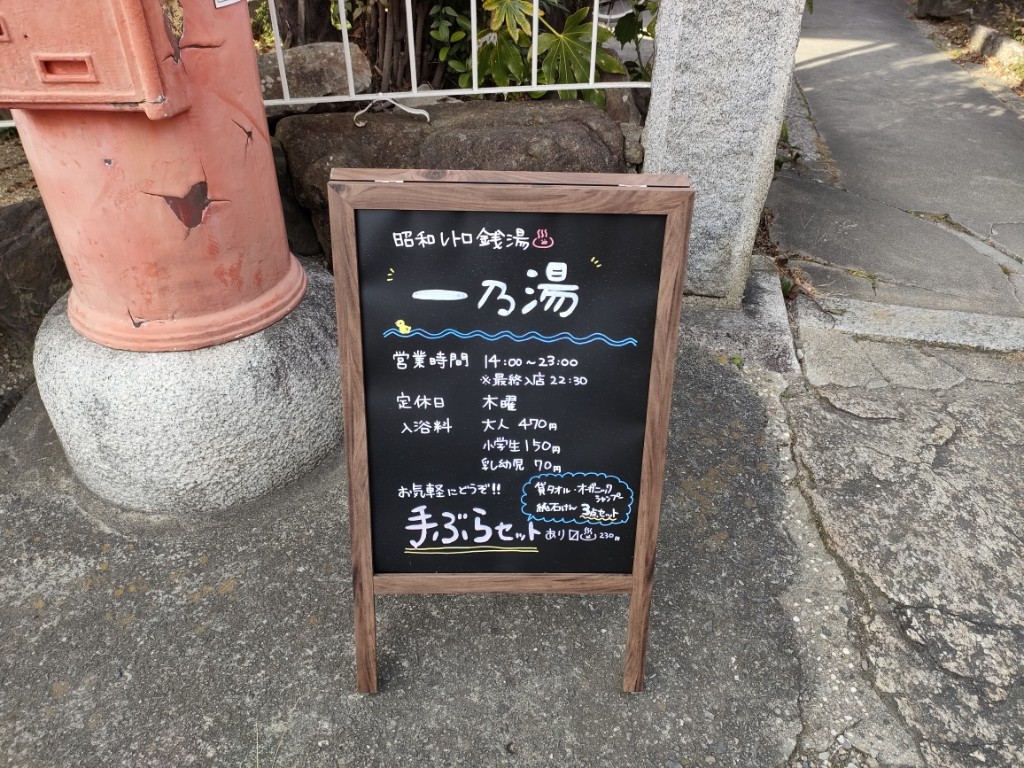 昭和レトロ銭湯♨
一乃湯
営業時間 14:00～23:00
※最終入店 22:30
定休日 木曜
入浴料 大人 470円
小学生 150円
乳幼児 70円
お気軽にどうぞ!!
貸タオル・オーガニック
シャンプー
純石けん 3点セット
手ぶらセット あり〼♨ 230円